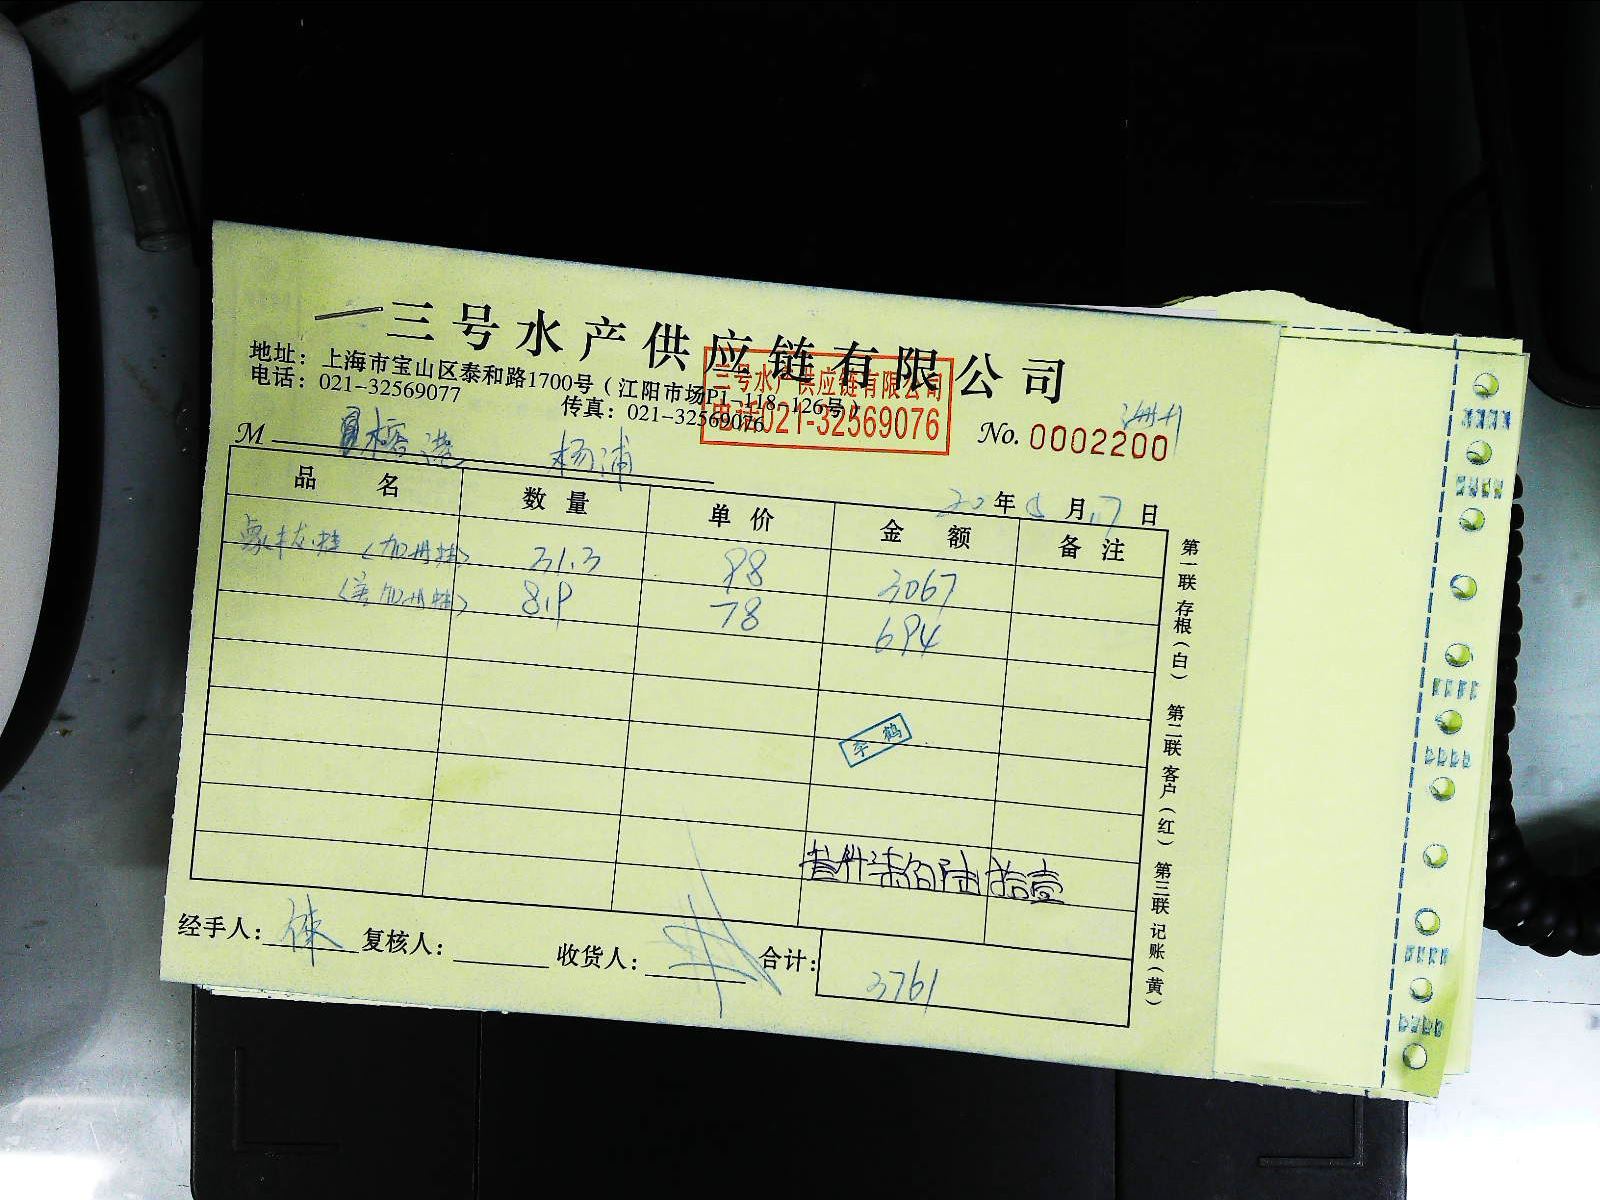 三号水产供应链有限公司
地址：上海市宝山区泰和路1700号（江阳市场P1-118-126号）
电话：021-32569077 传真：021-32569076
三号水产供应链有限公司
电话021-32569076
M 杨浦
No. 0002200
20年8月17日
品名 数量 单价 金额 备注
象拔蚌（加州蚌） 31.3 98 3067
（加州蚌） 8.9 78 694
李鹤
叁仟柒佰陆拾壹
经手人： 复核人： 收货人： 合计： 3761
第一联 存根（白） 第二联 客户（红） 第三联 记账（黄）